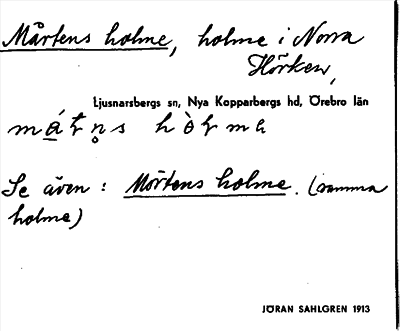 Mårtens holme, holme i Norra
Hörken,
Ljusnarsbergs sn, Nya Kopparbergs hd, Örebro län
Se även: Mårtens holme. (samma
holme)
JÖRAN SAHLGREN 1913